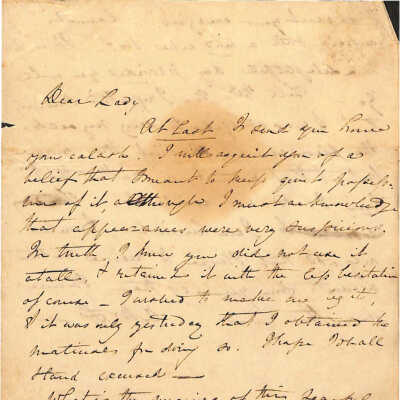 Dear Lady
At Last I send you home
your calash. I will acquit you of a
belief that I meant to keep quiet posses-
sion of it, although I must acknowledge
that appearances were very suspicious.
In truth, I knew you did not use it
atall, & retained it with the less hesitation
of course — I wished to make me by it,
& it was only yesterday that I obtained the
materials for doing so. I hope I shall
stand excused —
What is the meaning of this